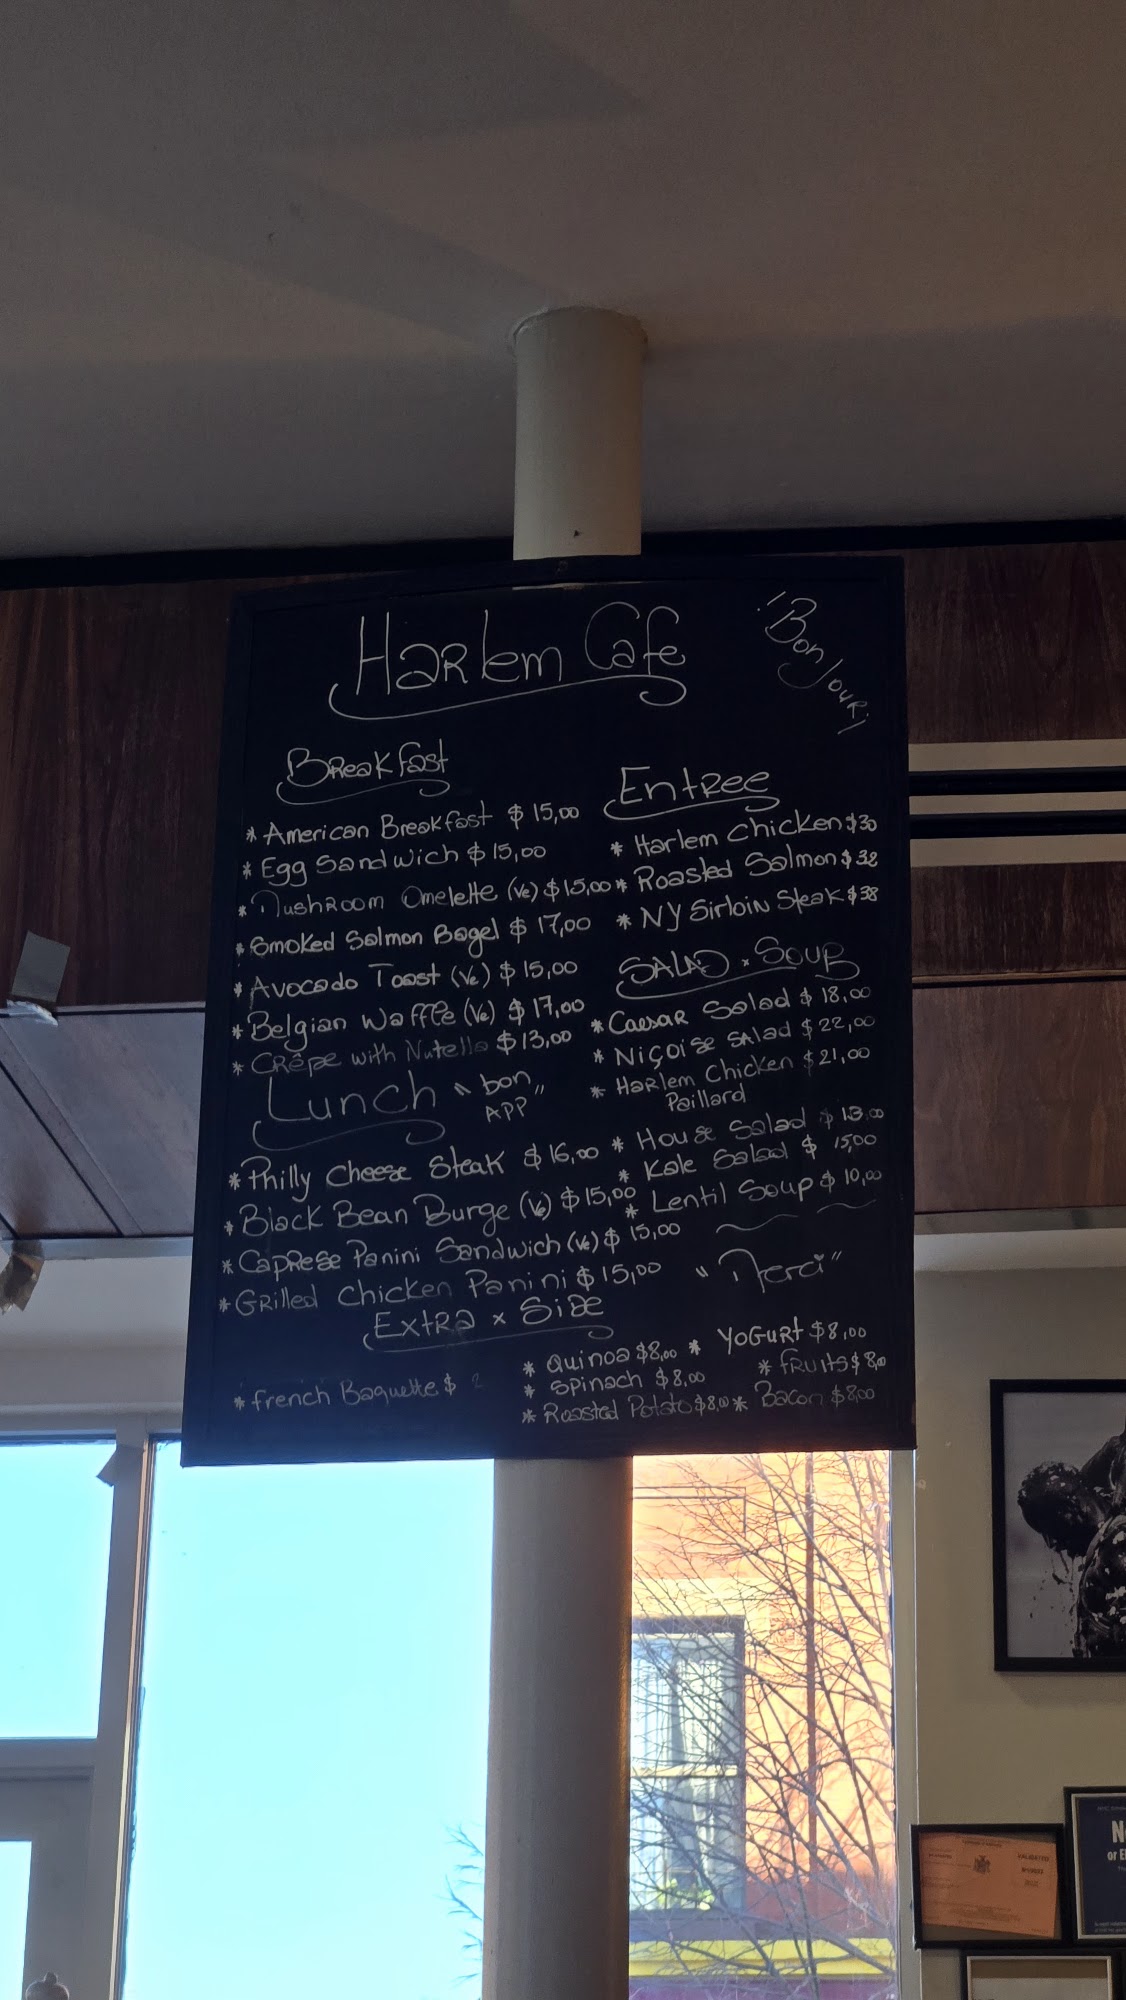 Harlem Cafe
¡Bonjour!
Breakfast
* American Breakfast $ 15,00
* Egg Sandwich $ 15,00
* Mushroom Omelette (Ve) $ 15,00
* Smoked Salmon Bagel $ 17,00
* Avocado Toast (Ve) $ 15,00
* Belgian Waffle (Ve) $ 17,00
* Crêpe with Nutella $ 13,00
Lunch "bon
APP"
* Philly Cheese Steak $ 16,00
* Black Bean Burge (Ve) $ 15,00
* Caprese Panini Sandwich (Ve) $ 15,00
* Grilled Chicken Panini $ 15,00
Entree
* Harlem Chicken $30
* Roasted Salmon $
* NY Sirloin Steak $38
SALAD × Soup
* Caesar Salad $ 18,00
* Niçoise Salad $ 22,00
* Harlem Chicken $ 21,00
Paillard
* House Salad $ 13.00
* Kale Salad $ 15,00
* Lentil Soup $ 10,00
"Merci"
Extra × Side
* French Baguette $
* Quinoa $8,00
* Spinach $8,00
* Roasted Potato $8,00
* Yogurt $8,00
* Fruits $8,00
* Bacon $8,00
VALIDATED
or E